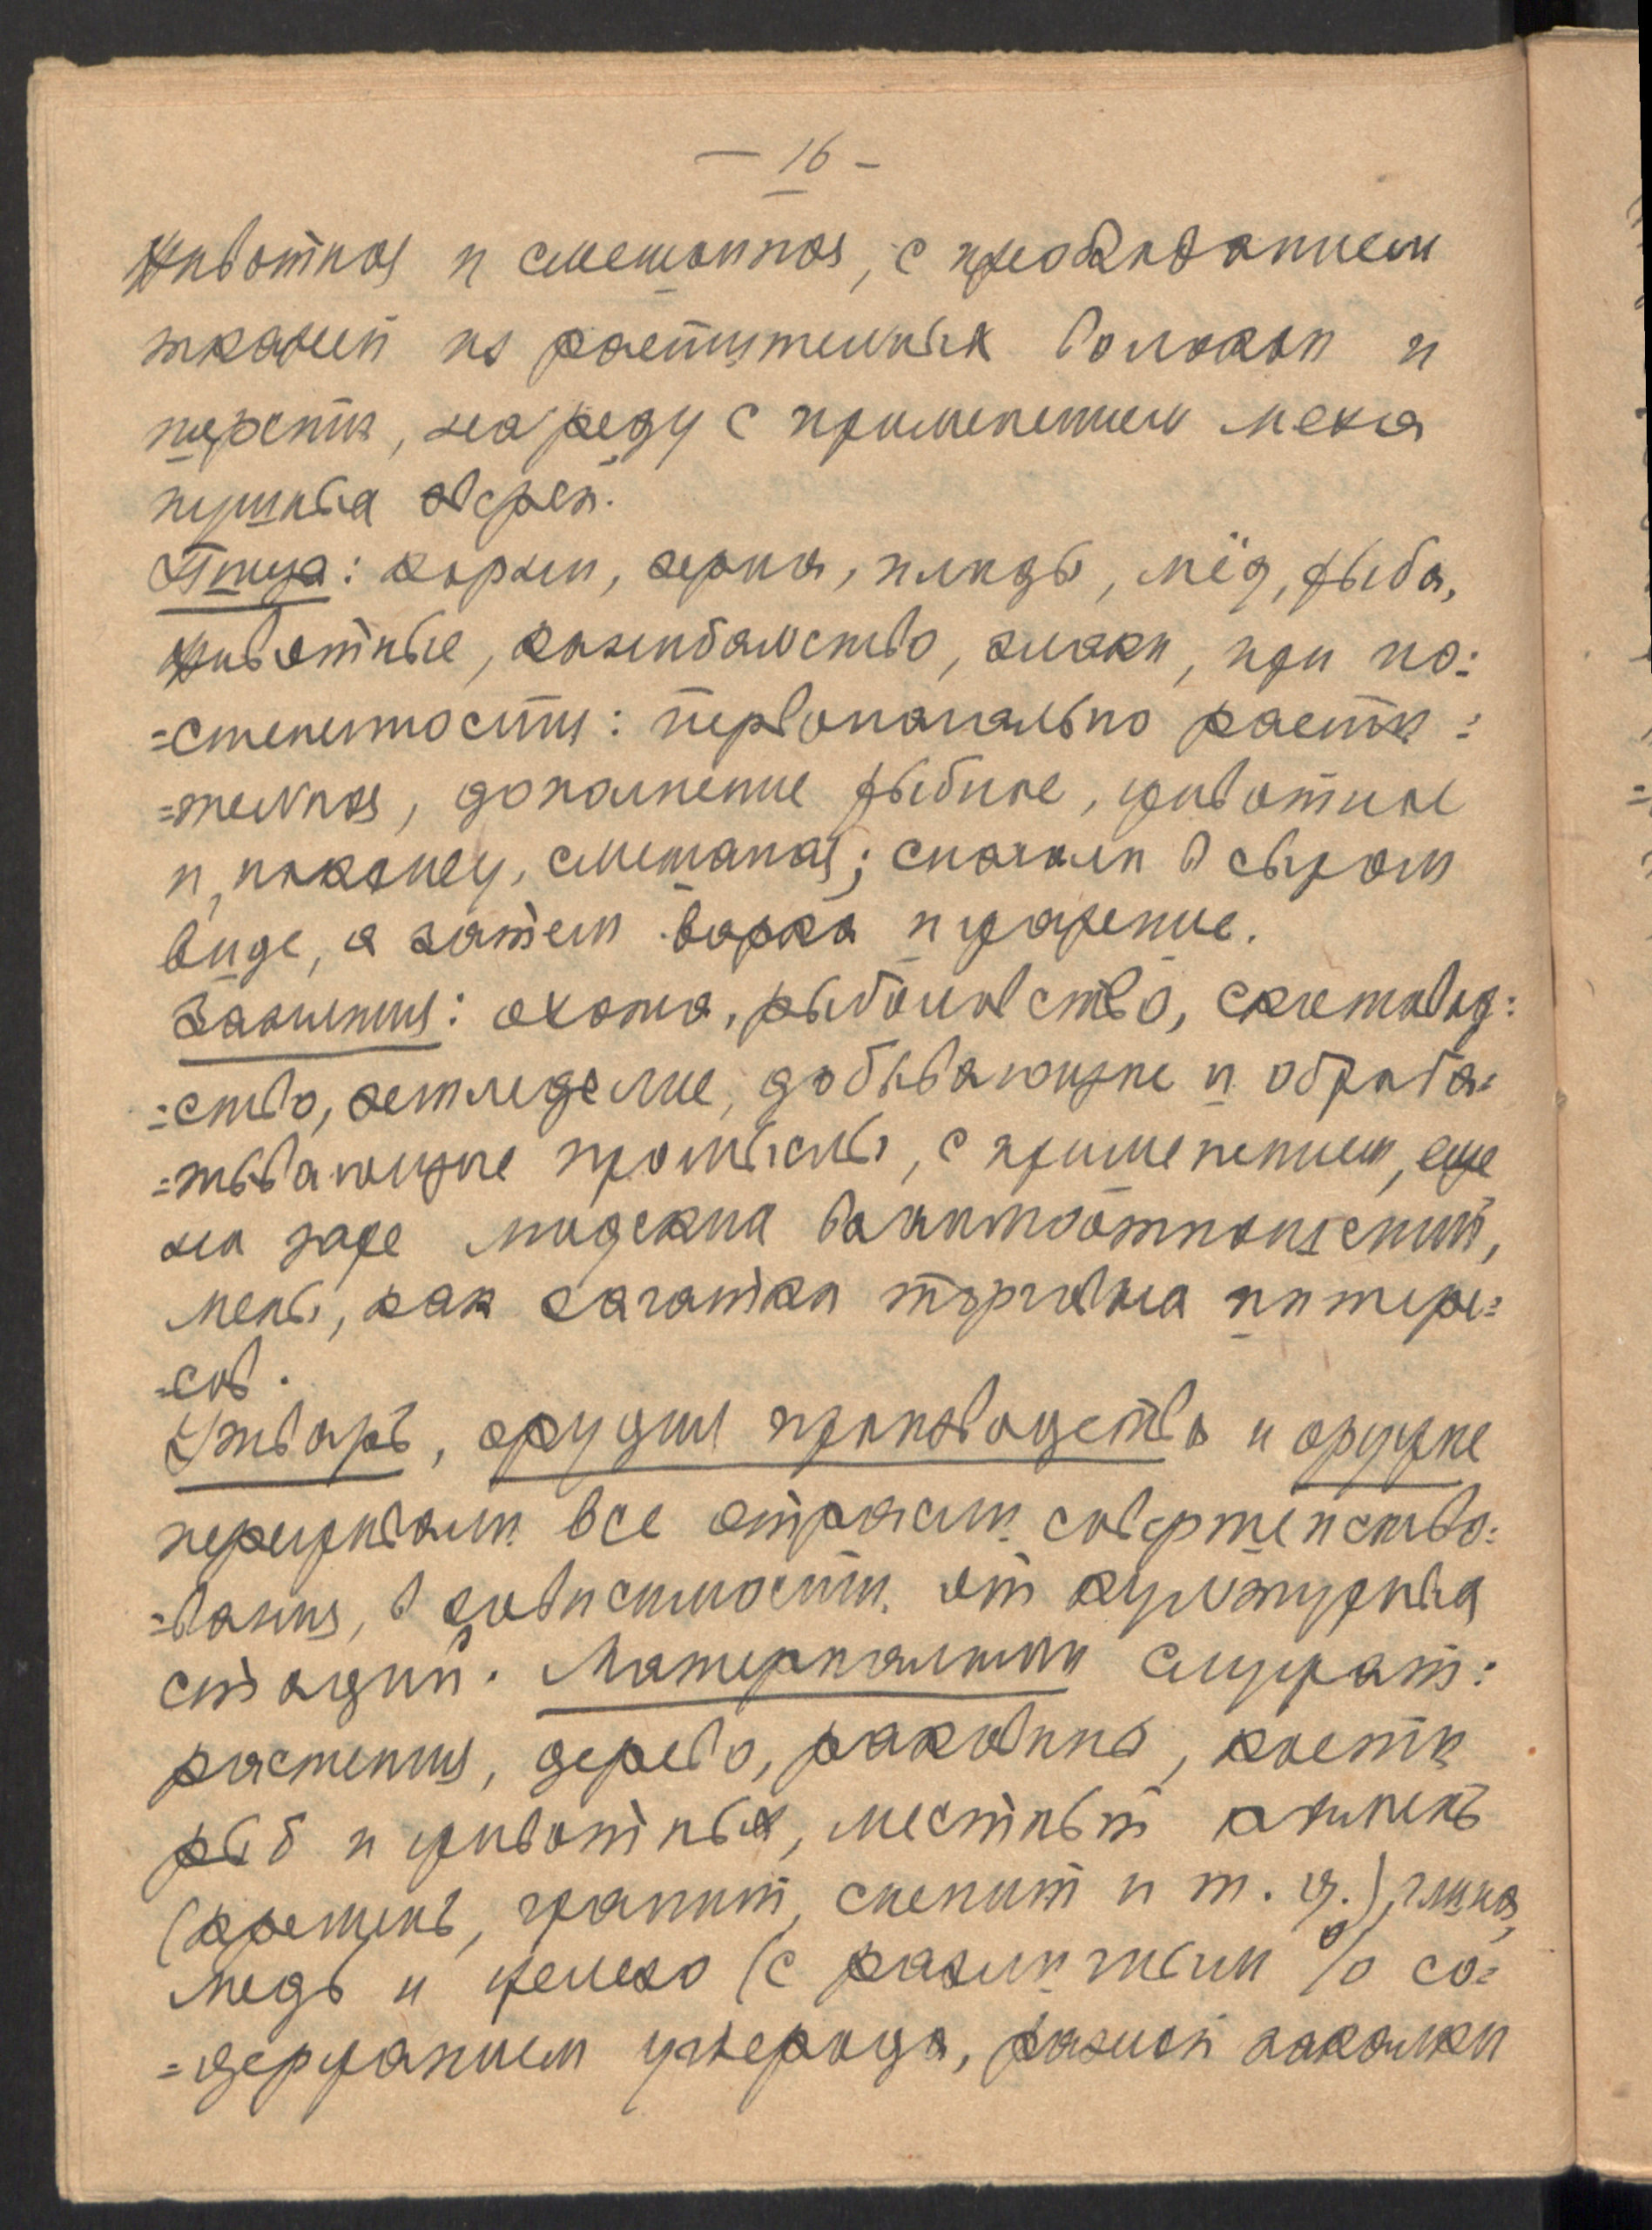 — 16 –
животная и смешанная, с преобладанием
тканей из растительных волокон и
шерсти, на ряду с применением меха
пушных зверей.
Пища: корни, зерна, плоды, мёд, рыба,
животные, каннибальство, злаки, при по=
=степенности: первоначально расти=
=тельная, дополнение рыбное, животное
и, наконец, смешаная; сначала в сыром
виде, а затем варка и жарение.
Занятия: охота, рыболовство, скотовод=
=ство, земледелие, добывающие и обраба=
=тывающие промыслы, с применением, еще
на заре людских взаимоотношений,
мены, как зачатка торговых интере=
=сов.
Утварь, орудия производства и оружие
переживали все отрасли совершенство=
=вания, в зависимости от культурных
стадий. Материалами служат:
растения, дерево, раковины, кости
рыб и животных, местный камень
(кремень, гранит, сиенит и т. д.), глина,
медь и железо (с различным % со=
=держанием углерода, разной закалки